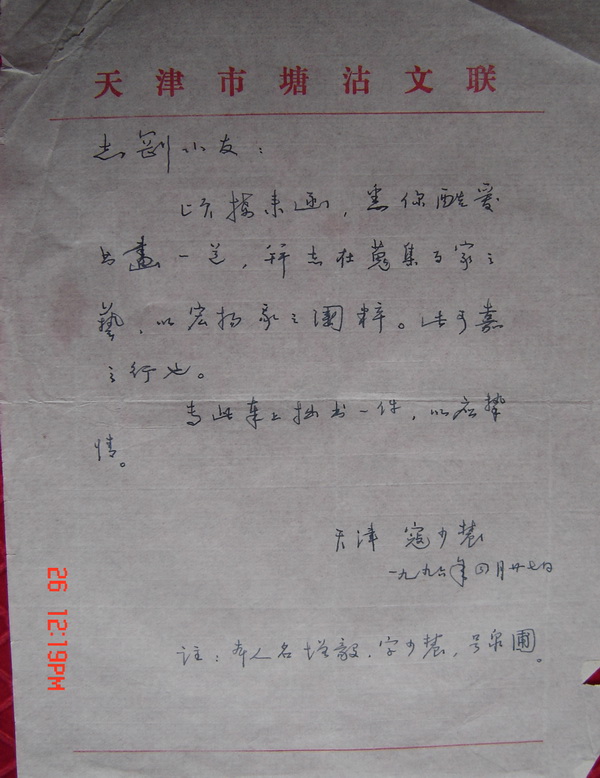 天津市塘沽文联
志劏小友：
顷接来函，悉你酷爱
书画一道，并志在蒐集百家之
藝，以宏扬我之国粹。此可嘉
之行也。
专此奉上拙书一件，以应挚
情。
天津 寇少辇
一九九六年四月廿七日
註：本人名增毅，字少辇，号泉圃。
26 12:19PM